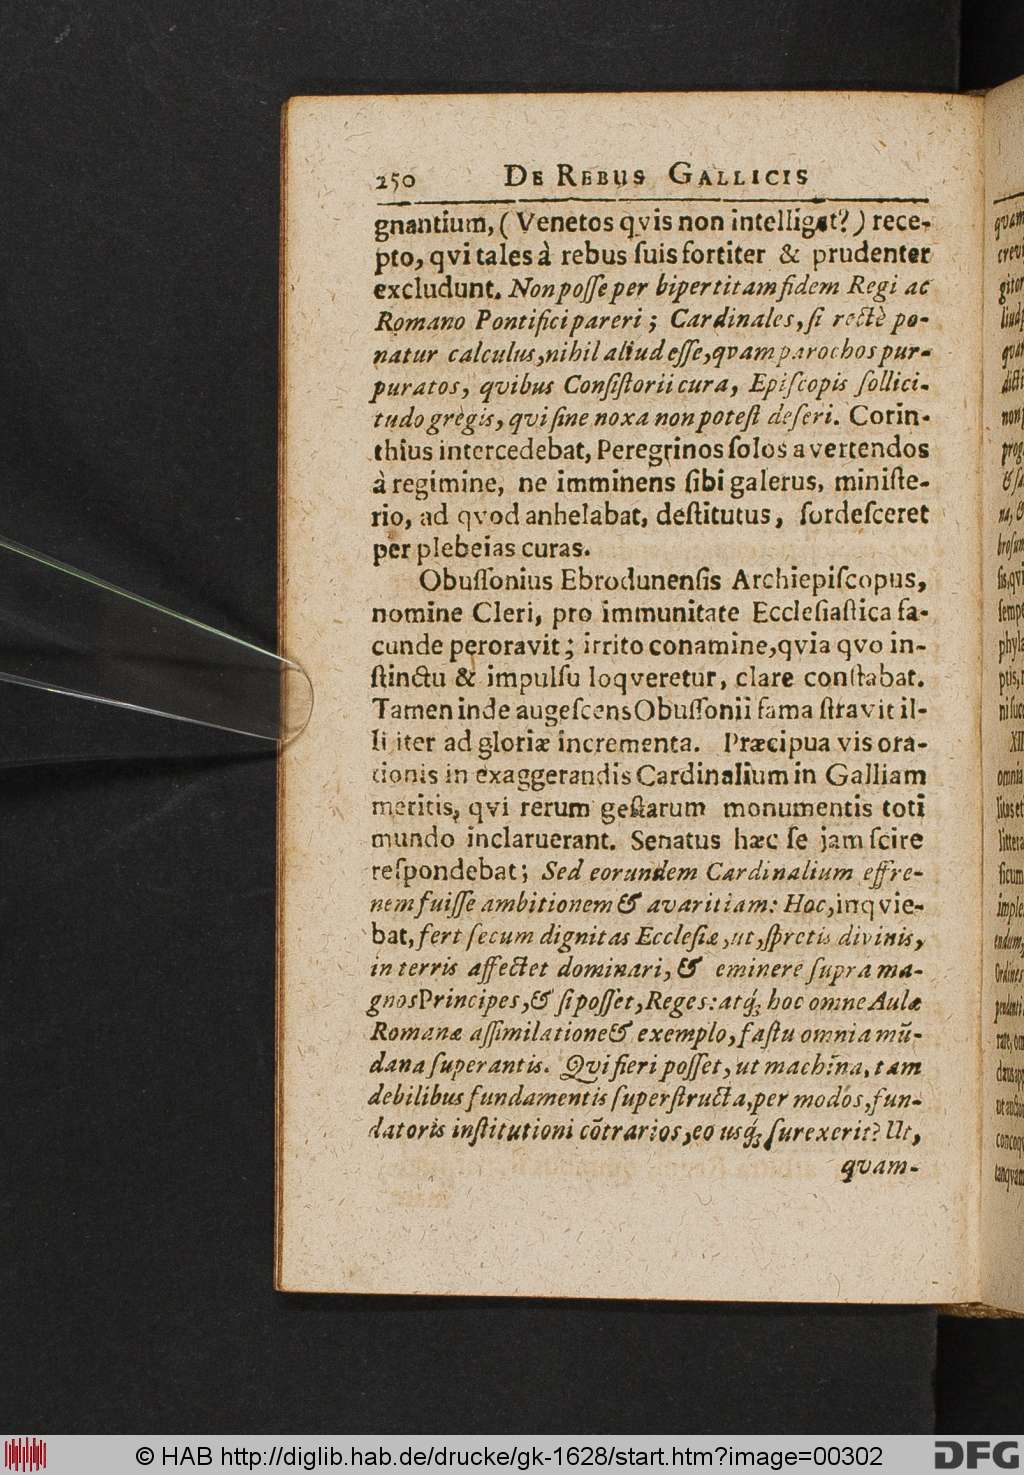 250 DE REBUS GALLICIS
gnantium, (Venetos qvis non intelligat?) rece-
pto, qvi tales à rebus ſuis fortiter & prudenter
excludunt. Non poſſe per bipertitam fidem Regi ac
Romano Pontifici pareri; Cardinales, ſi rectè po-
natur calculus, nihil aliud eſſe, qvam parochos pur-
puratos, qvibus Conſiſtorii cura, Epiſcopis ſollici-
tudo gregis, qvi ſine noxa non poteſt deſeri. Corin-
thius intercedebat, Peregrinos ſolos avertendos
à regimine, ne imminens ſibi galerus, miniſte-
rio, ad qvod anhelabat, deſtitutus, ſordeſceret
per plebeias curas.
Obuſſonius Ebrodunenſis Archiepiſcopus,
nomine Cleri, pro immunitate Eccleſiaſtica fa-
cunde peroravit; irrito conamine, qvia qvo in-
ſtinctu & impulſu loqveretur, clare conſtabat.
Tamen inde augeſcens Obuſſonii fama ſtravit il-
li iter ad gloriæ incrementa. Præcipua vis ora-
tionis in exaggerandis Cardinalium in Galliam
meritis, qvi rerum geſtarum monumentis toti
mundo inclaruerant. Senatus hæc ſe jam ſcire
reſpondebat; Sed eorundem Cardinalium effre-
nem fuiſſe ambitionem & avaritiam: Hoc, inqvie-
bat, fert ſecum dignitas Eccleſiæ, ut, ſpretis divinis,
in terris affectet dominari, & eminere ſupra ma-
gnos Principes, & ſi poſſet, Reges: atq́; hoc omne Aulæ
Romanæ aſſimilatione & exemplo, faſtu omnia mũ-
dana ſuperantis. Qvi fieri poſſet, ut machĩna, tam
debilibus fundamentis ſuperſtructa, per modos, fun-
datoris inſtitutioni cõtrarios, eo usq́; ſurexerit? Ut,
qvam-
© HAB http://diglib.hab.de/drucke/gk-1628/start.htm?image=00302
DFG